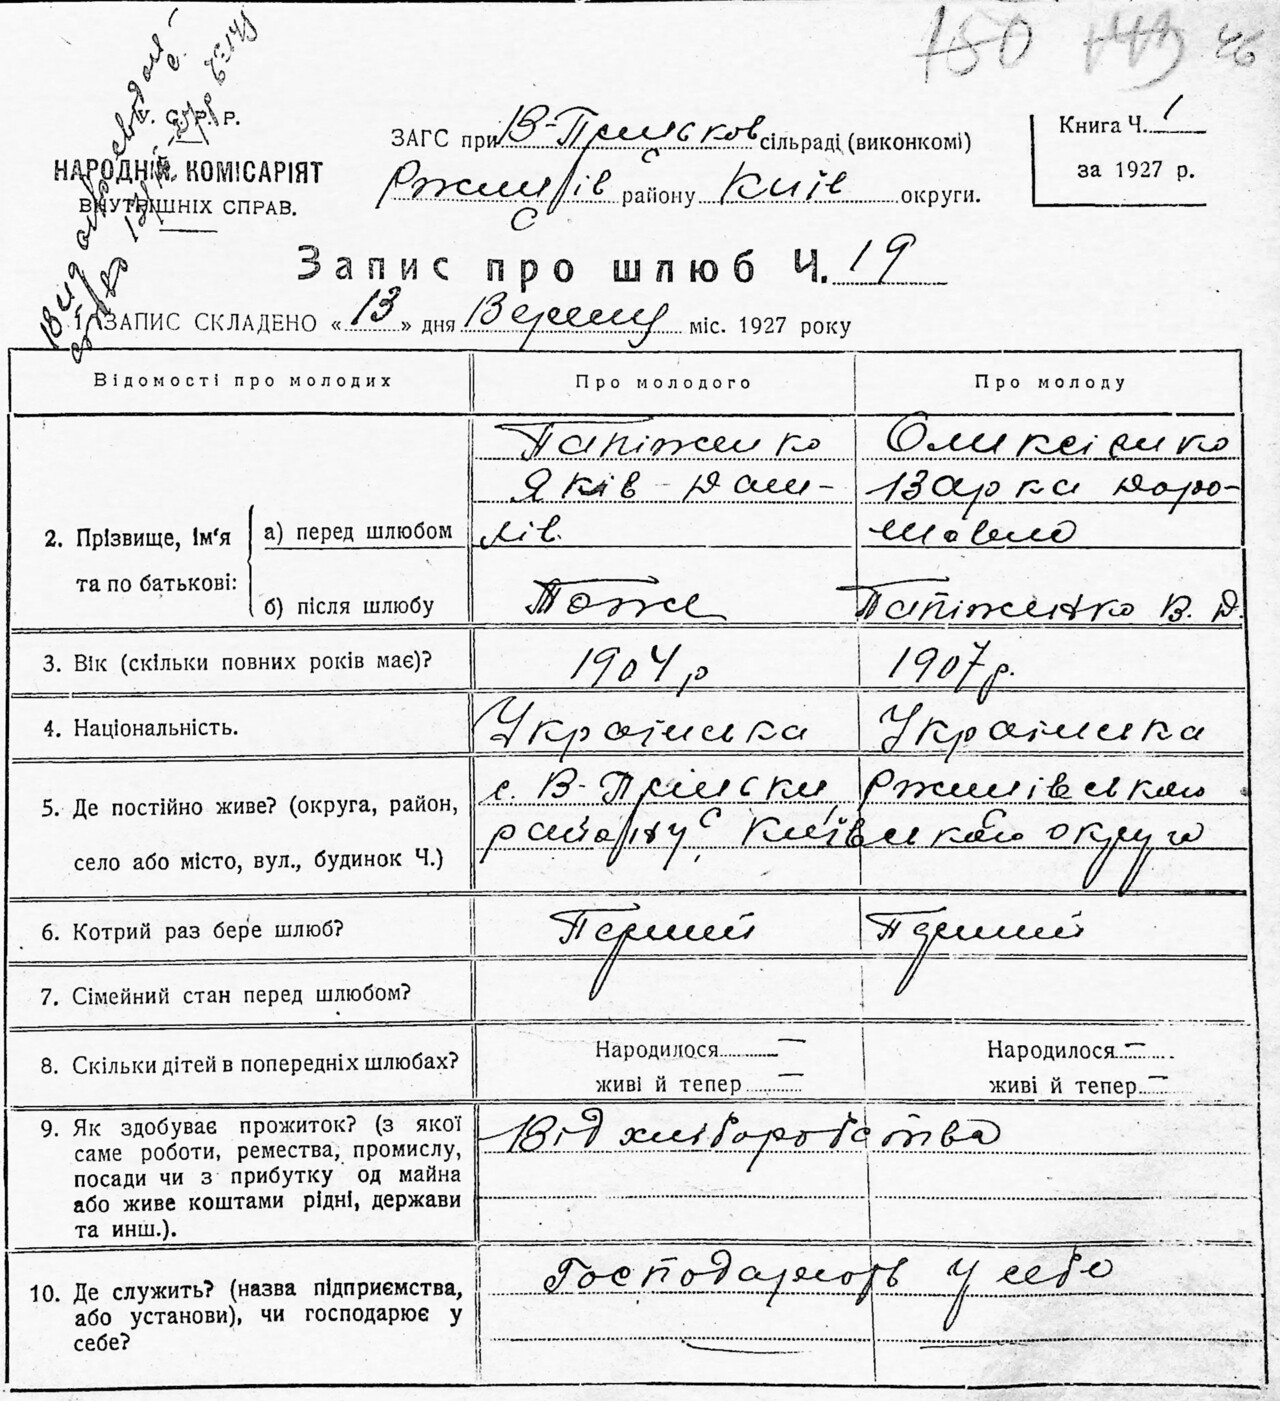 150 149 46
У. С. Р. Р.
НАРОДНІЙ КОМІСАРІЯТ
ВНУТРІШНІХ СПРАВ.
ЗАГС при В-Прицьков сільраді (виконкомі)
Ржищів району Київ округи.
Книга Ч. 1
за 1927 р.
Запис про шлюб Ч. 19
1. ЗАПИС СКЛАДЕНО «13» дня Вересня міс. 1927 року
Відомості про молодих Про молодого Про молоду
2. Прізвище, ім'я та по батькові:
а) перед шлюбом
Папіженко Яків Дани-
лів.
Оликсієнко
Варка Доро-
б) після шлюбу Тоже Папіженко В. Д.
3. Вік (скільки повних років має)? 1904 р 1907 р.
4. Національність. Українська Українська
5. Де постійно живе? (округа, район,
село або місто, вул., будинок Ч.)
с. В-Прицьки, Ржищівського
району, Київського округа
6. Котрий раз бере шлюб? Перший Перший
7. Сімейний стан перед шлюбом?
8. Скільки дітей в попередніх шлюбах?
Народилося — Народилося —
живі й тепер — живі й тепер —
9. Як здобуває прожиток? (з якої
саме роботи, ремества, промислу,
посади чи з прибутку од майна
або живе коштами рідні, держави
та инш.).
Від хліборобства
10. Де служить? (назва підприємства,
або установи), чи господарює у
себе?
Господарюють у себе